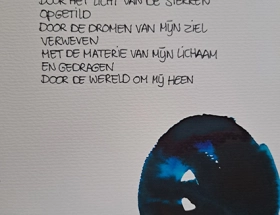 DOOR HET LICHT VAN DE STERREN
OPGETILD
DOOR DE DROMEN VAN MIJN ZIEL
VERWEVEN
MET DE MATERIE VAN MIJN LICHAAM
EN GEDRAGEN
DOOR DE WERELD OM MIJ HEEN